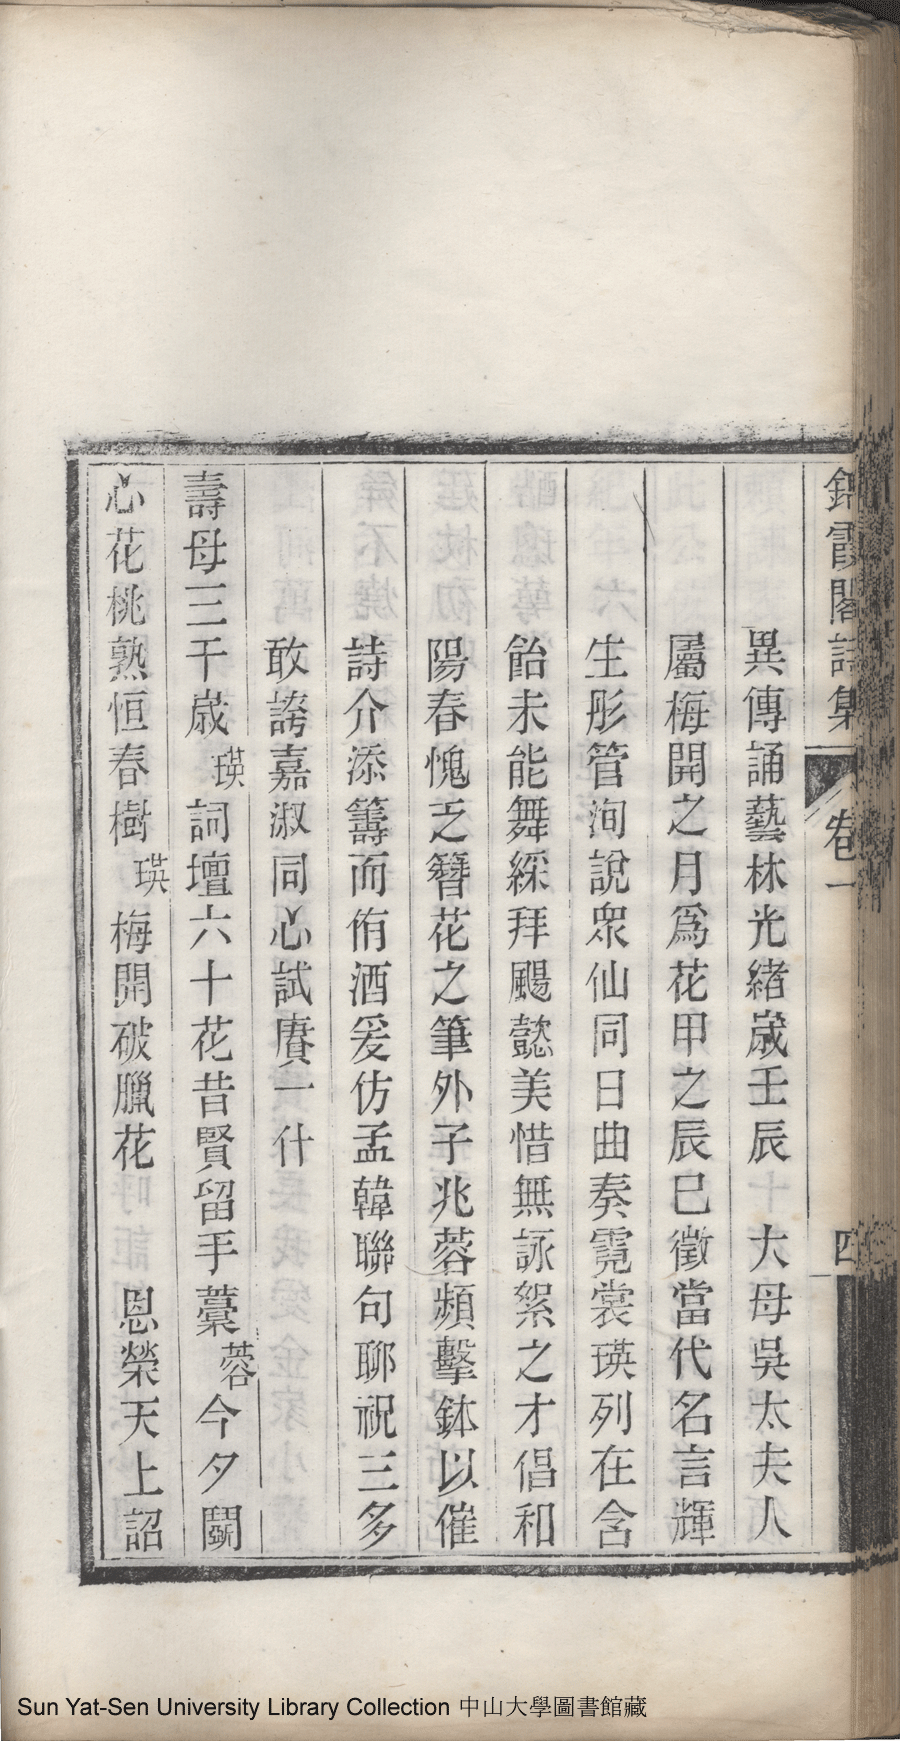 錦霞閣詩集 卷一 四
異傳誦藝林光緒歲壬辰 大母吳太夫人
屬梅開之月為花甲之辰巳徵當代名言輝
生彤管洵說眾仙同日曲奏霓裳瑛列在含
飴未能舞綵拜颺懿美惜無詠絮之才倡和
陽春愧乏簪花之筆外子兆蓉頻擊鉢以催
詩介添籌而侑酒爰仿孟韓聯句聊祝三多
敢誇嘉淑同心試賡一什
壽母三千歲瑛詞壇六十花昔賢留手藁蓉今夕鬭
心花桃熟恒春樹瑛梅開破臘花 恩榮天上詔
Sun Yat-Sen University Library Collection 中山大學圖書館藏